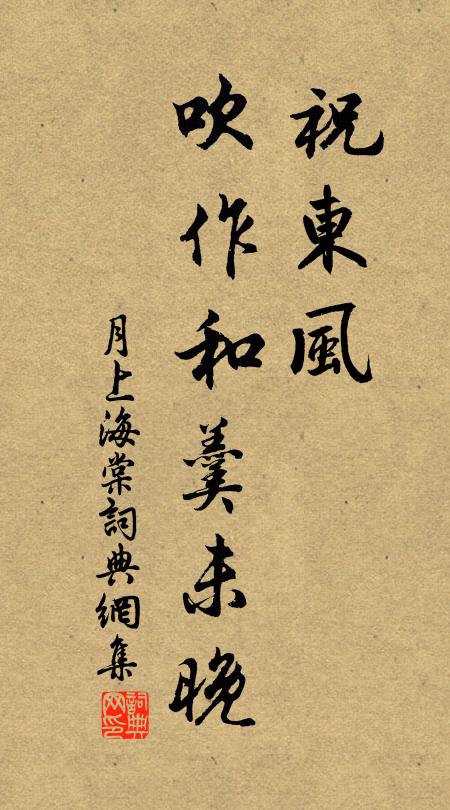 祝東風
吹作和羹未晚
月上海棠詞典網集
詞典
网印